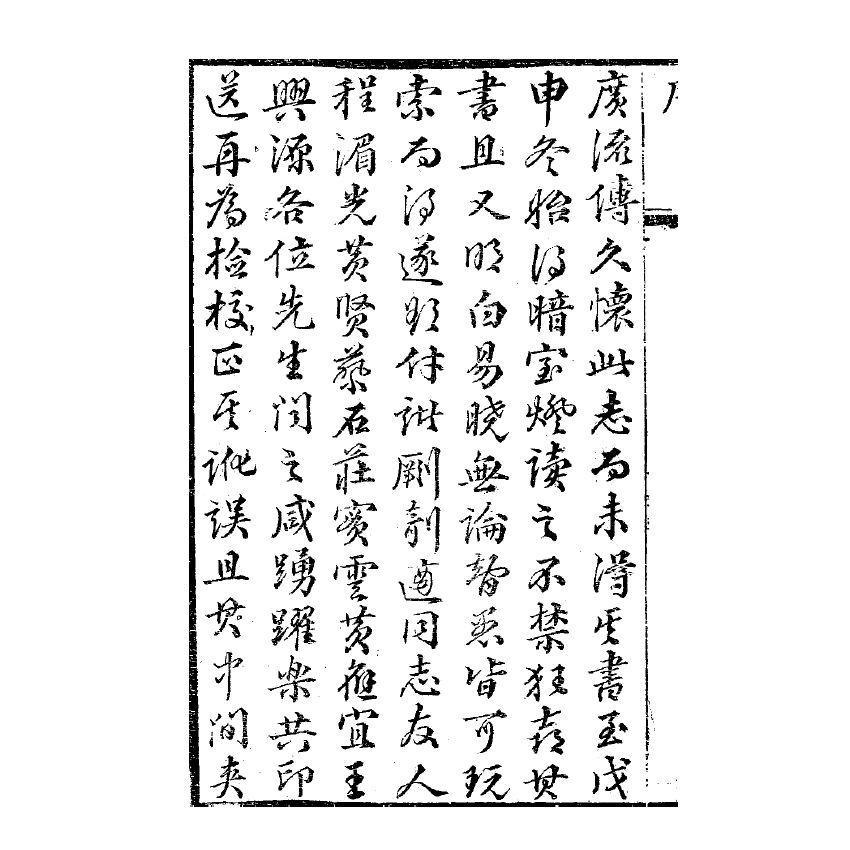 廣流傳久懷此志而未得其書至戊
申冬始得暗室燈讀之不禁狂喜其
書且又明白易曉無論智愚皆可玩
索而得遂欲付諸剞劂適同志友人
程湄光黃賢蔡石莊賓雲黃雁宜王
興源各位先生聞之咸踴躍樂共印
送再為檢校正其訛誤且其中間夾